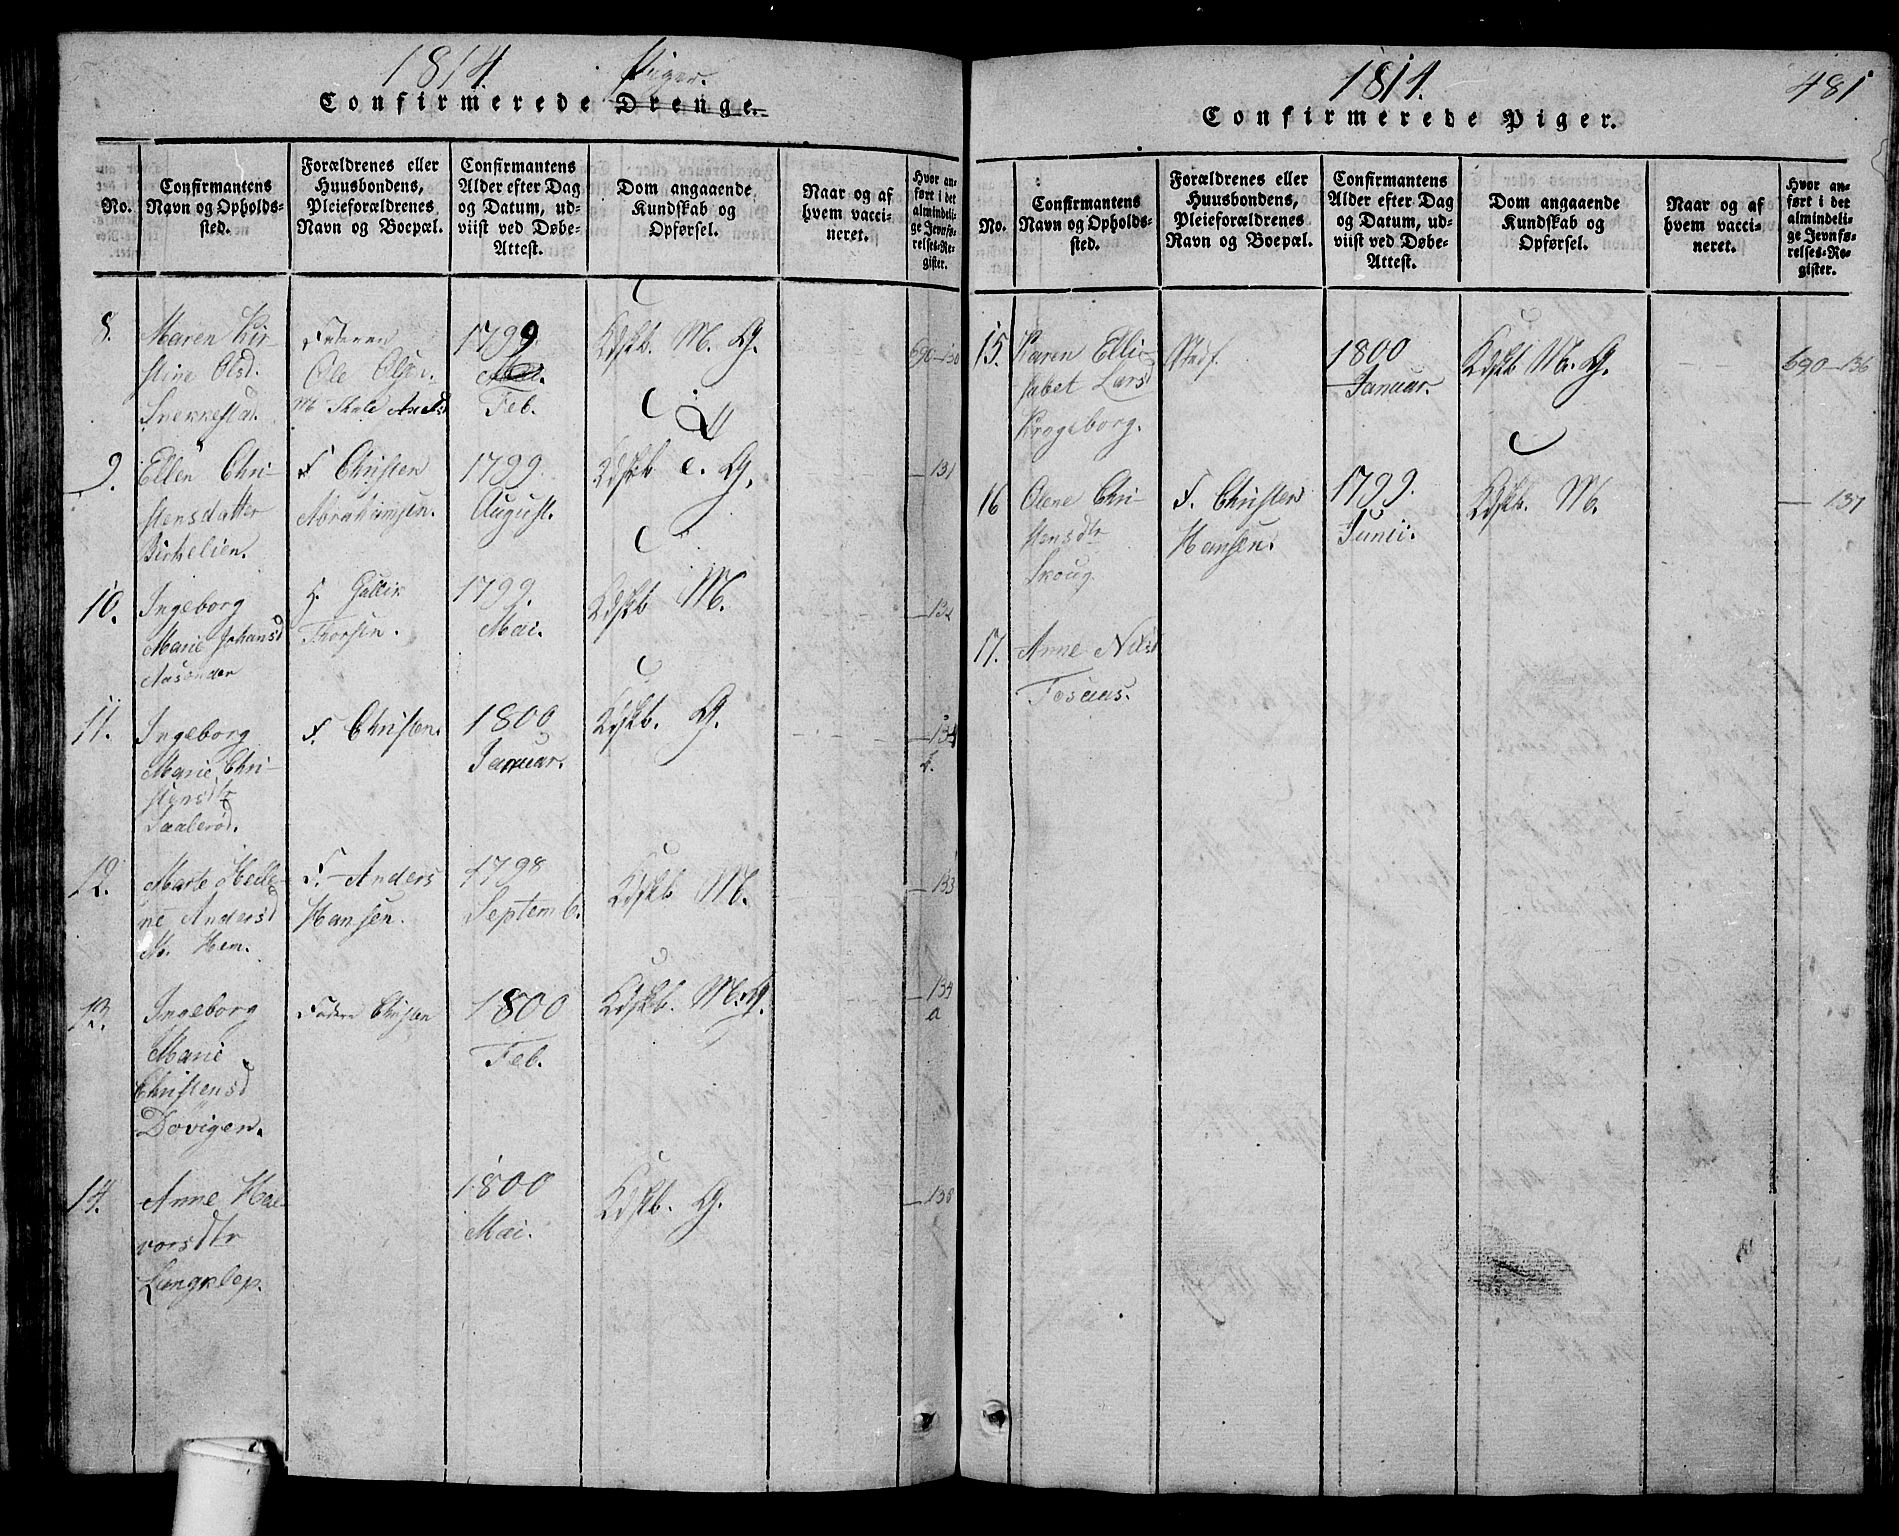 1814. Piger.
Confirmerede Drenge.
No.
Confirmantens
Navn og Opholds-
sted.
Forældrenes eller
Huusbondens,
Pleieforældrenes
Navn og Boepæl.
Confirmantens
Alder efter Dag
og Datum, ud-
viist ved Døbe-
Attest.
Dom angaaende
Kundskab og
Opførsel.
Naar og af
hvem vacci-
neret.
Hvor an-
ført i det
almindeli-
ge Jevnfø-
relses-Re-
gister.
8.
Maren Kir-
stine Olsd.
Faderen
Ole Olsen.
1799
Feb.
Kdskb. M. G.
690-130
9.
Ellen Chri-
stensdatter
Birkelien.
F Christen
Abrahamsen.
1799.
August.
Kdskb G.
131
10.
Ingeborg
Marie Johansd
Aasonden
Thorsen.
1799.
Mai.
Kdskb M.
132
11.
Ingeborg
Marie Chri-
stensdtr
Saalerød.
F. Christen.
1800
Januar.
Kdskb. G.
134
12.
Marte Hele-
ne Andersd
F. Anders
Hansen.
1798
Septemb.
Kdskb M.
133
13.
Ingeborg
Marie
Christensd
Dovigen.
Christen
1800
Feb.
Kdskb. M. G.
134
a
14.
Anne Hal-
vorsdtr
Langklep.
1800
Mai.
Kdskb. G.
138
1814.
481
Confirmerede Piger.
No.
Confirmantens
Navn og Opholds-
sted.
Forældrenes eller
Huusbondens,
Pleieforældrenes
Navn og Boepæl.
Confirmantens
Alder efter Dag
og Datum, ud-
viist ved Døbe-
Attest.
Dom angaaende
Kundskab og
Opførsel.
Naar og af
hvem vacci-
neret.
Hvor an-
ført i det
almindeli-
ge Jevnfø-
relses-Re-
gister.
15.
Karen Elli-
sabet Larsd
Krogeborg.
1800
Januar.
Kdskb M. G.
690-136
16
Olene Chri-
stensdtr
Skoug.
F. Christen
Hansen.
1799.
Junii.
Kdskb. M.
137
17.
Anne Nilsd
Fosaas.